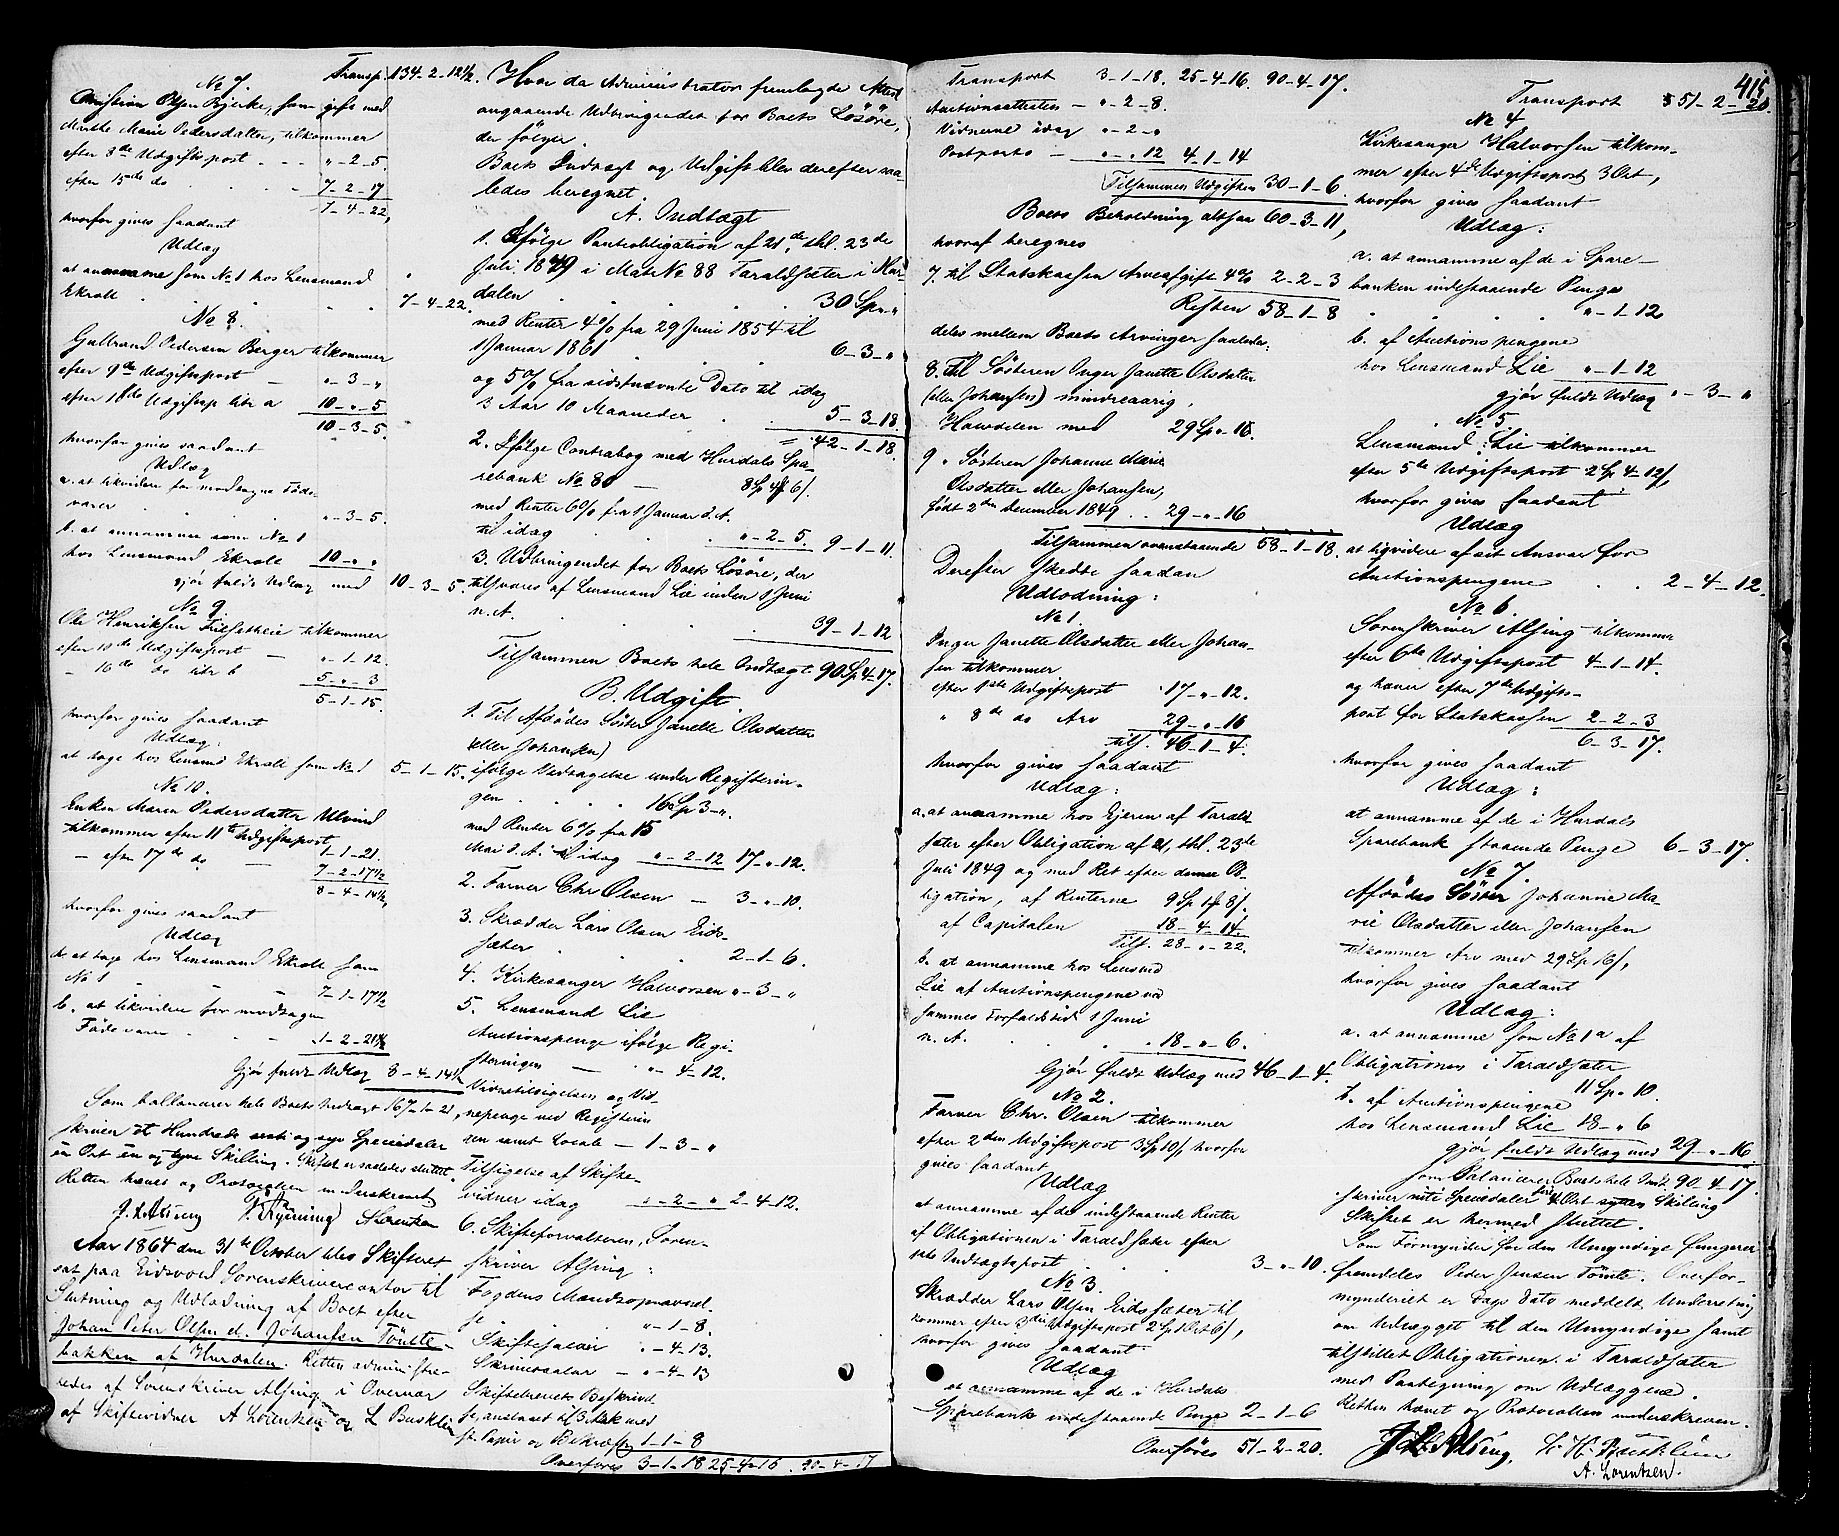 Transp. 134-2-12½
No 7.
Christian Olsen Bjerke, som gift med
Marthe Marie Pedersdatter, tilkommer
efter 3de Udgiftspost . . . „-2-5.
efter 15de do . . . 7-2-17
7-4-22,
hvorfor gives saadant
Udlæg
at annamme som No 1 hos Lensmand
Ekrolt . . . 7-4-22.
No 8.
Gulbrand Pedersen Berger tilkommer
efter 9de Udgiftspost — „-3-„
efter 18de Udgiftsp litr a 10-„-5
10-3-5.
hvorfor gives saadant
Udlæg
a. at likvidere for modtagne Føde-
varer . . . „-3-5.
b. at annamme som No 1
hos Lensmand Ekrolt 10-„-„
gjør fuldt Udlæg med 10-3-5.
No 9.
Ole Henriksen Trilsetheie tilkommer
efter 10de Udgiftspost — „-1-12.
— 16de do litr b 5-„-3
5-1-15.
hvorfor gives saadant
Udlæg:
at tage hos Lensmd Ekrolt som No 1 5-1-15.
No 10.
Enken Maren Pedersdatter Ulvind
tilkommer efter 11te Udgiftspost,
1-1-21.
— efter 17de do — 7-2-17½
8-4-14½,
hvorfor gives saadant
Udlæg
a. at tage hos Lensmand Ekrolt som
No 1 . . . 7-1-17½
b. at likvidere for modtagne
Fødevarer . . . 1-2-21½
Gjør fuldt Udlæg 8-4-14½
Som ballancerer hele Boets Indtægt 167-1-21,
skriver et Hundrede sexti og syv Speciedaler
en Ort en og tyve Skilling. Skiftet er saaledes sluttet.
Retten hævet og Protocollen underskrevet
J. L. Alsing A Lorentzen
Aar 1864 den 31te October blev Skifteret
sat paa Eidsvold Sorenskrivercontor til
Slutning og Udlodning af Boet efter
Johan Peter Olsen el. Johansen Tömte-
bakken af Hurdalen. Retten administre-
redes af Sorenskriver Alsing i Overvær
af Skiftevidner A Lorentzen og L Busklein
Hvor da Administrator fremlagde Attest
angaaende Udbringendet for Boets Løsøre,
der følger.
Boets Indtægt og Udgift blev derefter saa-
ledes beregnet.
A. Indtægt
1. Ifølge Pantobligation af 21de thl. 23de
Juli 1849 i Matr No 88 Taraldsæter i Hur-
dalen . . . 30 Sp „-„
med Renter 4% fra 29 Juni 1854 til
1 Januar 1861 . . . 6-3-„
og 5% fra sidstnævnte Dato til idag
3 Aar 10 Maaneder . . . 5-3-18.
= 42-1-18.
2. Ifølge Contrabog med Hurdals Spa-
rebank No 80 — 8 Sp 4 ₰ 6/.
med Renter 6% fra 1 Januar d. A.
til idag . . . „-2-5. 9-1-11.
3. Udbringendet for Boets Løsøre, der
tilsvares af Lensmand Lie inden 1 Juni
n. A. . . . 39-1-12
Tilsammen Boets hele Indtægt 90 Sp 4-17.
B. Udgift.
1. Til Afdødes Søster Janette Olsdatter
(eller Johansen)
ifølge Vedtagelse under Registerin-
gen . . . 16 Sp 3-„.
med Renter 6% fra 15
Mai d. A. til idag „-2-12 17-„-12.
2. Farver Chr Olsen — 3-„-10.
3. Skrædder Lars Olsen Eids-
sæter . . . 2-1-6.
4. Kirkesanger Halvorsen „-3-„
5. Lensmand Lie
Auctionspenge ifølge Regi-
steringen — „-4-12.
Vidnetilsigelsen og Vid-
nepenge ved Registerin
gen samt Locale — 1-3-„
Tilsigelse af Skifte-
vidner idag „-2-„ 2-4-12.
6. Skifteforvalteren, Soren-
skriver Alsing:
Fogdens Mandsopnævnel-
se . . . „-1-8.
Skiftesalair „-4-13.
Skriversalar — „-4-13
Skiftebrevets Beskrivel-
se, anslaaet til 3 Ark med
st. Papir og Bekræft 1-1-8
Overføres 3-1-18 25-4-16. 90-4-17
Transport 3-1-18. 25-4-16. 90-4-17.
Auctionsattesten — „-2-8.
Vidnerne idag „-2-„
Postporto — „-„ 12 4-1-14
Tilsammen Udgiften 30-1-6.
Boets Beholdning altsaa 60-3-11,
hvoraf beregnes
7. til Statskassen Arveafgift 4% 2-2-3
Resten 58-1-8
deles mellem Boets Arvinger saaledes:
8. Til Søsteren Inger Janette Olsdatter
(eller Johansen) mindreaarig,
Halvdelen med 29 Sp „ 16.
9 „ Søsteren Johanne Marie
Olsdatter eller Johansen,
født 2den December 1849 . . 29-„-16
Tilsammen ovenstaaende 58-1-18.
Derefter skedte saadan
Udlodning:
No 1.
Inger Janette Olsdatter eller Johan-
sen tilkommer
efter 1ste Udgiftspost 17-„-12.
„ 8de do Arv 29-„-16
tils. 46-1-4.
hvorfor gives saadant
Udlæg:
a. at annamme hos Ejeren af Tarald-
sæter efter Obligation af 21, thl. 23de
Juli 1849 og med Ret efter denne Ob-
ligation, af Renterne 9 Sp 1 ₰ 8/.
af Capitalen 18-4-14.
Tils. 28-„-22.
b. at annamme hos Lensmd
Lie af Auctionspengene ved
sammes Forfaldstid 1 Juni
n. A. . . . 18-„-6.
Gjør fuldt Udlæg med 46-1-4.
No 2.
Farver Chr. Olsen tilkommer
efter 2den Udgiftspost 3 Sp 10/, hvorfor
gives saadant
Udlæg
at annamme af de indestaaende Renter
af Obligationen i Taraldsæter efter
1ste Indtægtspost . . . 3-„-10.
No 3.
Skrædder Lars Olsen Eidssæter til
kommer efter 3die Udgiftspost 2 Sp 1 Ort 6/,
hvorfor gives saadant
Udlæg
at annamme af de i Hurdals
Sparebank indestaaende Penge 2-1-6
Overføres 51-2-20.
415
Transport 51-2-20.
No 4
Kirkesanger Halvorsen tilkom-
mer efter 4de Udgiftspost 3 Ort,
hvorfor gives saadant
Udlæg:
a. at annamme af de i Spare-
banken indestaaende Penge
„-1-12
b. af Auctionspengene
hos Lensmand Lie „-1-12
gjør fuldt Udlæg „-3-„
No 5.
Lensmand Lie tilkommer
efter 5te Udgiftspost 2 Sp 4-12/,
hvorfor gives saadant
Udlæg
at liqvidere af sit Ansvar for
Auctionspengene . . 2-4-12.
No 6.
Sorenskriver Alsing tilkommer
efter 6te Udgiftspost 4-1-14.
og hæver efter 7de Udgifts-
post for Statskassen 2-2-3
6-3-17.
hvorfor gives saadant
Udlæg:
at annamme af de i Hurdals
Sparebank staaende Penge 6-3-17.
No 7.
Afdødes Søster Johanne Ma-
rie Olsdatter eller Johansen
tilkommer Arv med 29 Sp 16/,
hvorfor gives saadant
Udlæg:
a. at annamme som No 1 a af
Obligationen i Taraldsæter
11 Sp „ 10.
b. af Auctionspengene
hos Lensmand Lie 18-„ 6
gjør fuldt Udlæg med 29-„-16
som balancerer Boets hele Indt. 90-4-17.
skriver niti Speciedaler fire Ort sytten Skilling
Skiftet er hermed sluttet.
Som Formynder for den Umyndige fungerer
fremdeles Peder Jensen Tömte. Overfor-
mynderiet er Dags Dato meddelt Underretning
om Udlægget til den Umyndige samt
tilstillet Obligationen i Taraldsæter
med Paategning om Udlæggene.
Retten hævet og Protocollen underskreven.
J. L. Alsing. L. H. Buschlein
A. Lorentzen.